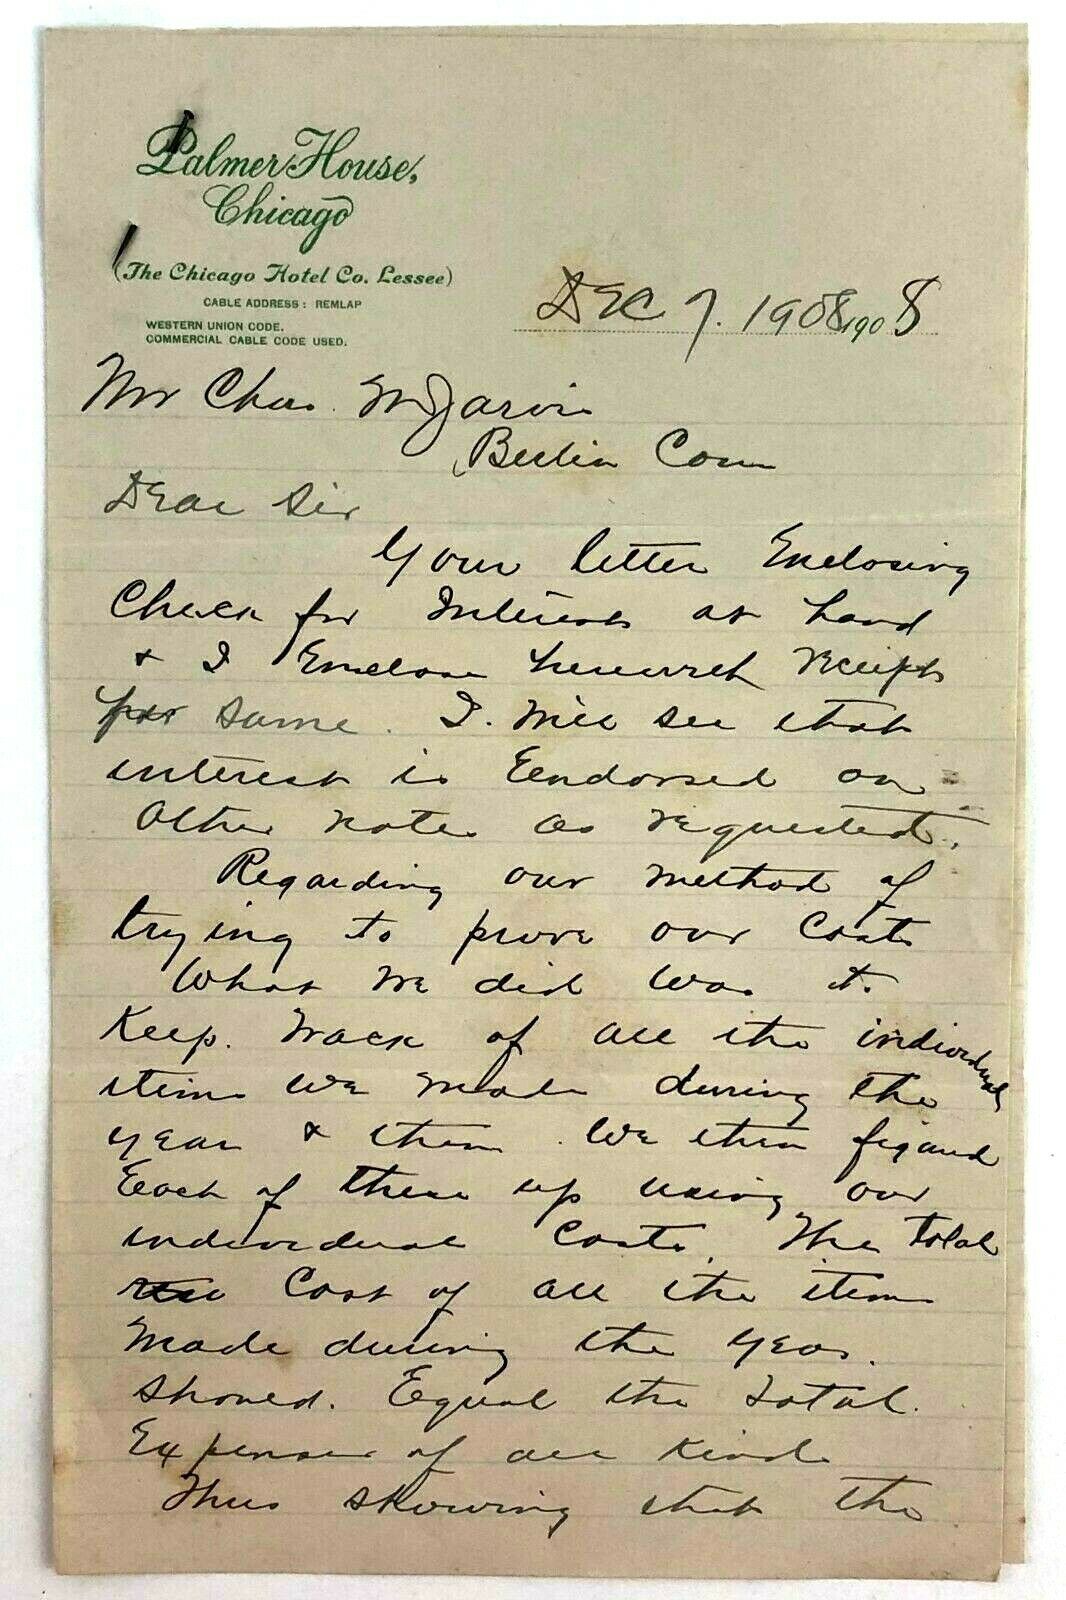 Palmer House,
Chicago
(The Chicago Hotel Co. Lessee)
CABLE ADDRESS: REMLAP
WESTERN UNION CODE.
COMMERCIAL CABLE CODE USED.
Dec 7. 1908 1908
Mr Chas. M Jarvis
Berlin Conn
Dear Sir
Your letter Enclosing
Check for Interest at hand
& I Enclose herewith receipts
for same. I. will see that
interest is Eendorsed on
Other notes as requested.
Regarding our method of
trying to prove our Costs
What we did was to
Keep. Track of all the individual
items we made during the
year & then We then figured
Each of these up using our
individual Costs. The total
Cost of all the items
made during the year.
Showed. Equal the Total.
Expenses of all kinds
Thus showing that the